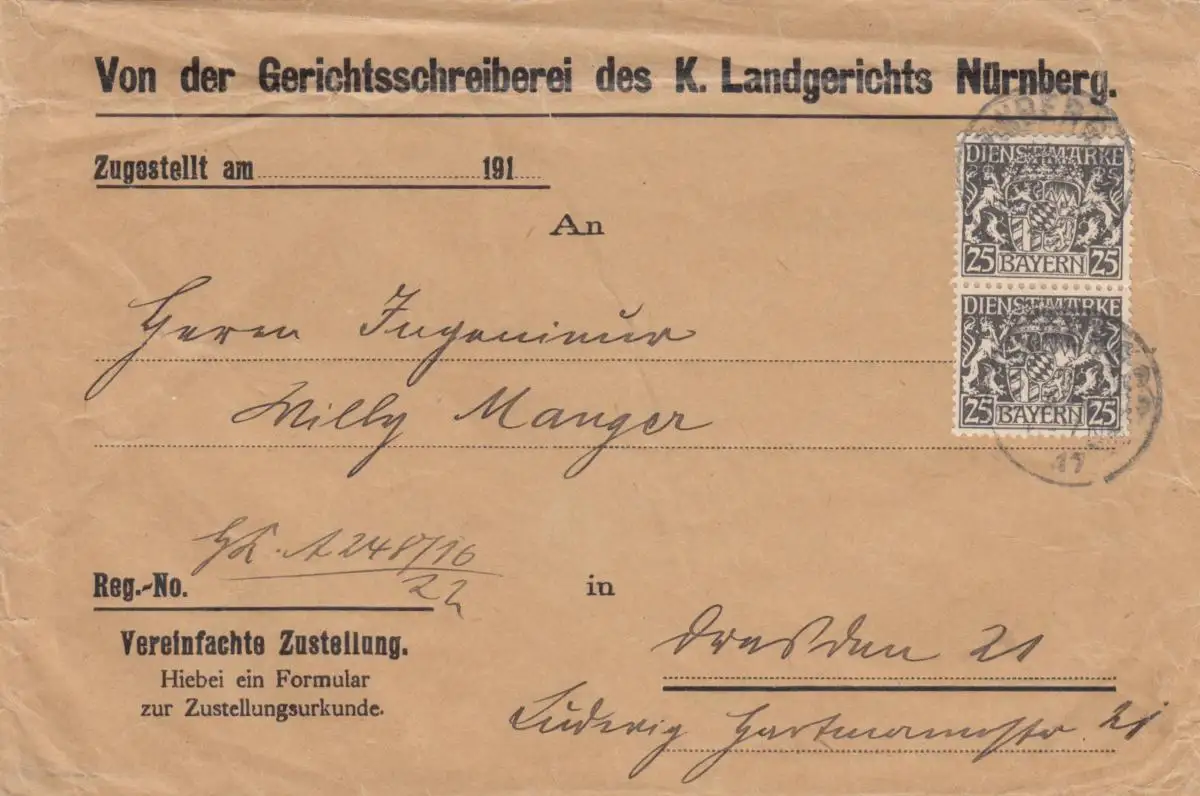 Von der Gerichtsschreiberei des K. Landgerichts Nürnberg.
Zugestellt am 191
An
DIENSTMARKE
25 BAYERN 25
DIENSTMARKE
25 BAYERN 25
17
Herrn Ingenieur
Willy Manger
Reg.-No. A 248/16
22
Vereinfachte Zustellung.
Hiebei ein Formular
zur Zustellungsurkunde.
in
Dresden 21
Ludwig Hartmannstr. 21